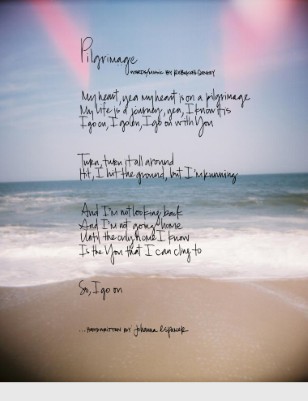 Pilgrimage
WORDS/MUSIC BY
My heart, yea my heart is on a pilgrimage
My life is a journey, yea, I know it is
I go on, I go on, I go on with You
Turn, turn it all around
Hit, I hit the ground, but I'm running
And I'm not looking back
And I'm not going home
Until the only home I know
Is the You that I can cling to
So, I go on
...HANDWRITTEN BY Johanna